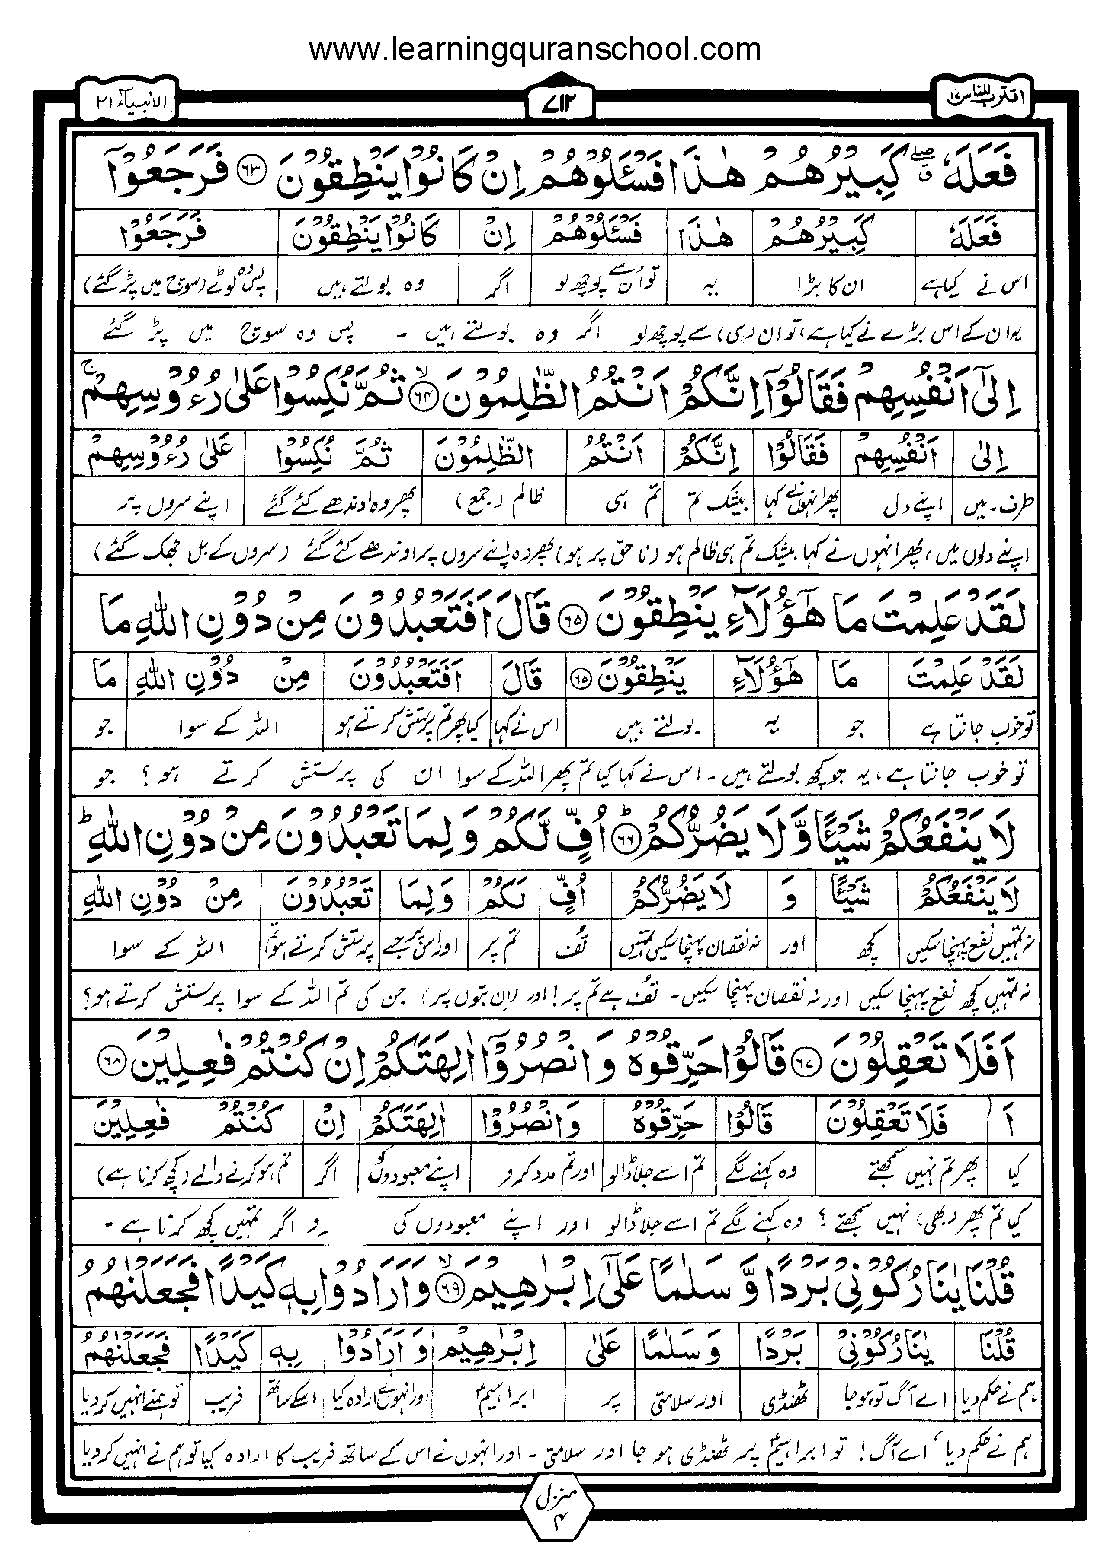 www.learningquranschool.com
اقترب للناس ۱۷ ۷۱۲ الانبیآء ۲۱
فَعَلَهٗ ۖۗ كَبِیْرُهُمْ هٰذَا فَسْـَٔلُوْهُمْ اِنْ كَانُوْا یَنْطِقُوْنَ ﴿۶۳﴾ فَرَجَعُوْۤا
فَعَلَهٗ كَبِیْرُهُمْ هٰذَا فَسْـَٔلُوْهُمْ اِنْ كَانُوْا یَنْطِقُوْنَ فَرَجَعُوْۤا
اس نے کیا ہے ان کا بڑا یہ تو اُن سے پوچھ لو اگر وہ بولتے ہیں پس وہ لوٹے (سوچ میں پڑ گئے)
یہ ان کے اس بڑے نے کیا ہے (تو ان (ہی) سے پوچھ لو اگر وہ بولتے ہیں - پس وہ سوچ میں پڑ گئے
اِلٰۤی اَنْفُسِهِمْ فَقَالُوْۤا اِنَّكُمْ اَنْتُمُ الظّٰلِمُوْنَ ۙ﴿۶۴﴾ ثُمَّ نُكِسُوْا عَلٰی رُءُوْسِهِمْ ۚ
اِلٰی اَنْفُسِهِمْ فَقَالُوْا اِنَّكُمْ اَنْتُمُ الظّٰلِمُوْنَ ثُمَّ نُكِسُوْا عَلٰی رُءُوْسِهِمْ
طرف۔ میں اپنے دل پھر انہوں نے کہا بیشک تم تم ہی ظالم (جمع) پھر وہ اوندھے کئے گئے اپنے سروں پر
اپنے دلوں میں، پھر انہوں نے کہا بیشک تم ہی ظالم ہو (ناحق پر ہو) پھر وہ اپنے سروں پر اوندھے کئے گئے (سروں کے بل جھک گئے)
لَقَدْ عَلِمْتَ مَا هٰۤؤُلَآءِ یَنْطِقُوْنَ ﴿۶۵﴾ قَالَ اَفَتَعْبُدُوْنَ مِنْ دُوْنِ اللّٰهِ مَا
لَقَدْ عَلِمْتَ مَا هٰۤؤُلَآءِ یَنْطِقُوْنَ ﴿۶۵﴾ قَالَ اَفَتَعْبُدُوْنَ مِنْ دُوْنِ اللّٰهِ مَا
تو خوب جانتا ہے جو یہ بولتے ہیں اس نے کہا کیا پھر تم پرستش کرتے ہو اللہ کے سوا جو
تو خوب جانتا ہے، یہ جو کچھ بولتے ہیں - اس نے کہا کیا تم پھر اللہ کے سوا ان کی پرستش کرتے ہو؟ جو
لَا یَنْفَعُكُمْ شَیْـًٔا وَّ لَا یَضُرُّكُمْ ؕ﴿۶۶﴾ اُفٍّ لَّكُمْ وَ لِمَا تَعْبُدُوْنَ مِنْ دُوْنِ اللّٰهِ ؕ
لَا یَنْفَعُكُمْ شَیْـًٔا وَ لَا یَضُرُّكُمْ اُفٍّ لَكُمْ وَ لِمَا تَعْبُدُوْنَ مِنْ دُوْنِ اللّٰهِ
نہ تمہیں نفع پہنچا سکیں کچھ اور نہ نقصان پہنچا سکیں تمہیں تُف تم پر اور اس پر جسے پرستش کرتے ہو تم اللہ کے سوا
نہ تمہیں کچھ نفع پہنچا سکیں اور نہ نقصان پہنچا سکیں۔ تُف ہے تم پر! اور (ان بتوں پر) جن کی تم اللہ کے سوا پرستش کرتے ہو؟
اَفَلَا تَعْقِلُوْنَ ﴿۶۷﴾ قَالُوْا حَرِّقُوْهُ وَ انْصُرُوْۤا اٰلِهَتَكُمْ اِنْ كُنْتُمْ فٰعِلِیْنَ ﴿۶۸﴾
اَ فَلَا تَعْقِلُوْنَ قَالُوْا حَرِّقُوْهُ وَ انْصُرُوْا اٰلِهَتَكُمْ اِنْ كُنْتُمْ فٰعِلِیْنَ
کیا پھر تم نہیں سمجھتے وہ کہنے لگے تم اسے جلا ڈالو اور تم مدد کرو اپنے معبودوں کی اگر تم ہو کرنے والے (کچھ کرنا ہے)
کیا تم پھر (بھی) نہیں سمجھتے؟ وہ کہنے لگے تم اسے جلا ڈالو اور اپنے معبودوں کی اگر تمہیں کچھ کرنا ہے -
قُلْنَا یٰنَارُ كُوْنِیْ بَرْدًا وَّ سَلٰمًا عَلٰۤی اِبْرٰهِیْمَ ۙ﴿۶۹﴾ وَ اَرَادُوْا بِهٖ كَیْدًا فَجَعَلْنٰهُمُ
قُلْنَا یٰنَارُ كُوْنِیْ بَرْدًا وَ سَلٰمًا عَلٰی اِبْرٰهِیْمَ وَ اَرَادُوْا بِهٖ كَیْدًا فَجَعَلْنٰهُمُ
ہم نے حکم دیا اے آگ تو ہو جا ٹھنڈی اور سلامتی پر ابراہیمؑ اور انہوں نے ارادہ کیا اسکے ساتھ فریب تو ہم نے انہیں کر دیا
ہم نے حکم دیا، اے آگ! تو ابراہیمؑ پر ٹھنڈی ہو جا اور سلامتی - اور انہوں نے اس کے ساتھ فریب کا ارادہ کیا تو ہم نے انہیں کر دیا
منزل ۴